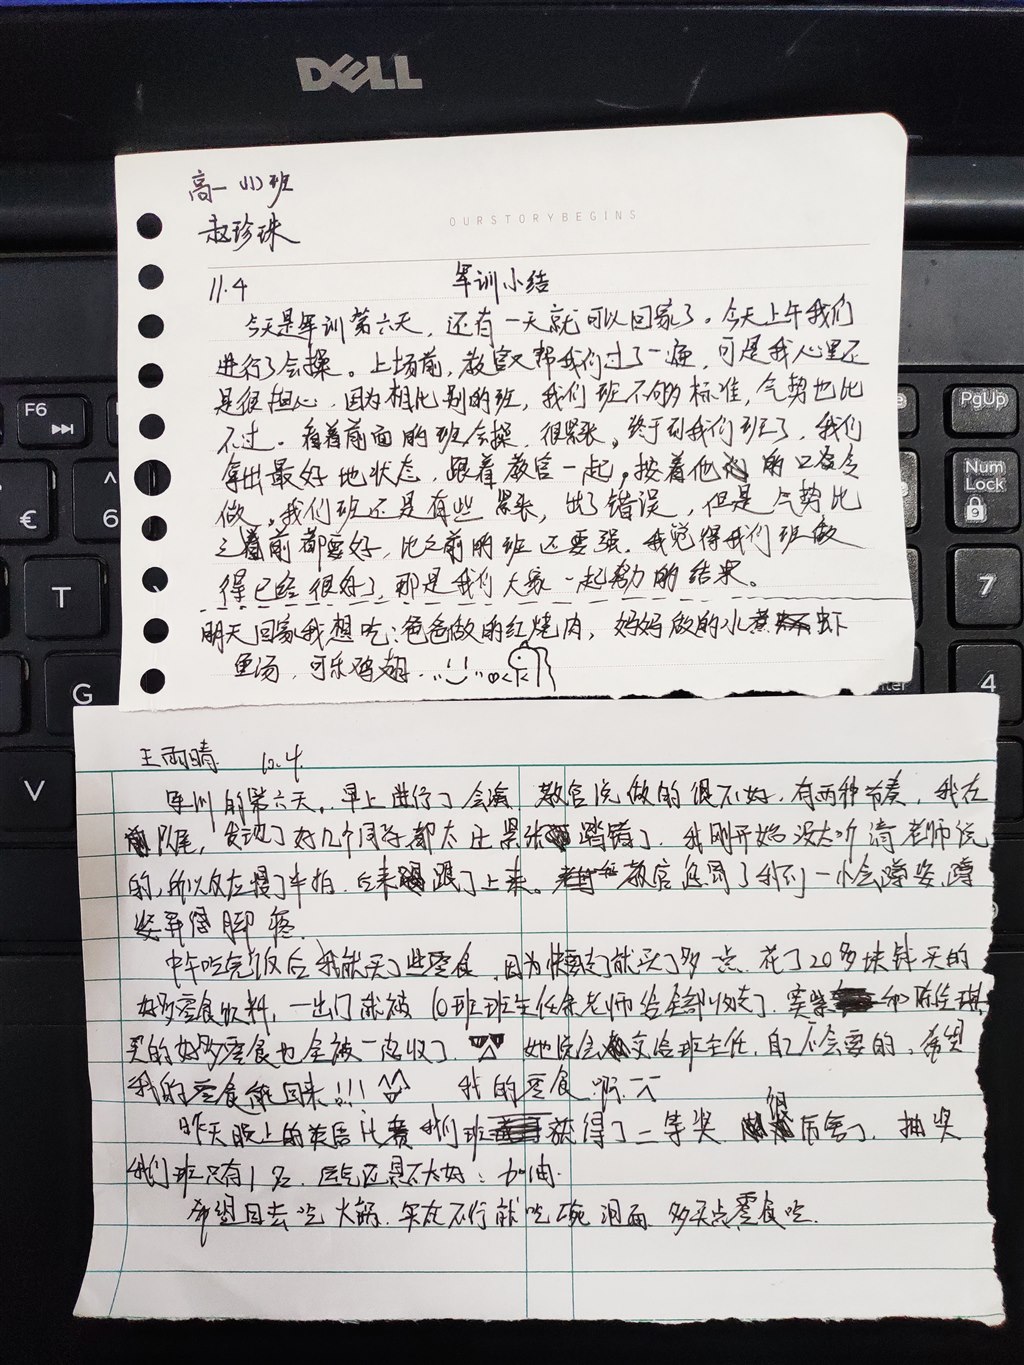 DELL
高一（11）班
赵珍珠
OURSTORYBEGINS
11.4 军训小结
今天是军训第六天，还有一天就可以回家了。今天上午我们
进行了会操。上场前，教官又帮我们过了一遍，可是我心里还
是很担心，因为相比别的班，我们班不够标准，气势也比
不过。看着前面的班会操，很紧张。终于到我们班了，我们
拿出最好地状态，跟着教官一起，按着他的口令
做。我们班还是有些紧张，出了错误，但是气势比
之前都要好，比之前的班还要强。我觉得我们班做
得已经很好了，那是我们大家一起努力的结果。
明天回家我想吃：爸爸做的红烧肉，妈妈做的水煮虾
鱼汤，可乐鸡翅
王雨晴 10.4.
军训的第六天。早上进行了会演，教官说做的很不好，有两种节奏，我在
队尾，发现了好几个同学都太过紧张踏错了，我刚开始没太听清老师说
的，所以反应慢了半拍，后来跟了上来。教官惩罚了我们一小会蹲姿，蹲
姿弄得脚疼.
中午吃完饭后我就买了些零食，因为快要走了就买了多点，花了20多块钱买的
好多零食饮料，一出门就被10班班主任余老师给全部收走了，
买的好多零食也全被一齐收了. 她说会交给班主任，自己不会要的，希望
我的零食能回来!!! 我的零食啊.
昨天晚上的 比赛我们班获得了二等奖 很厉害了，抽奖
我们班只有1名，运气还是不太好：加油.
希望回去吃火锅，实在不行就吃碗泡面，多买点零食吃.
F6
PgUp
Num
Lock
9
€
6
T
7
G
4
V